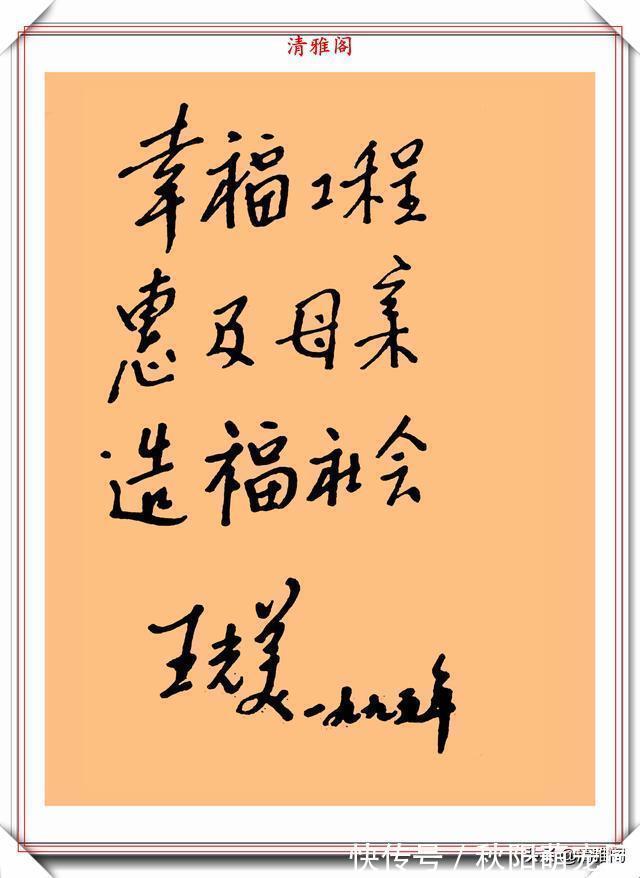 清雅阁
幸福工程
惠及母亲
造福社会
王光美一九九五年
快传号/秋阳萌宠